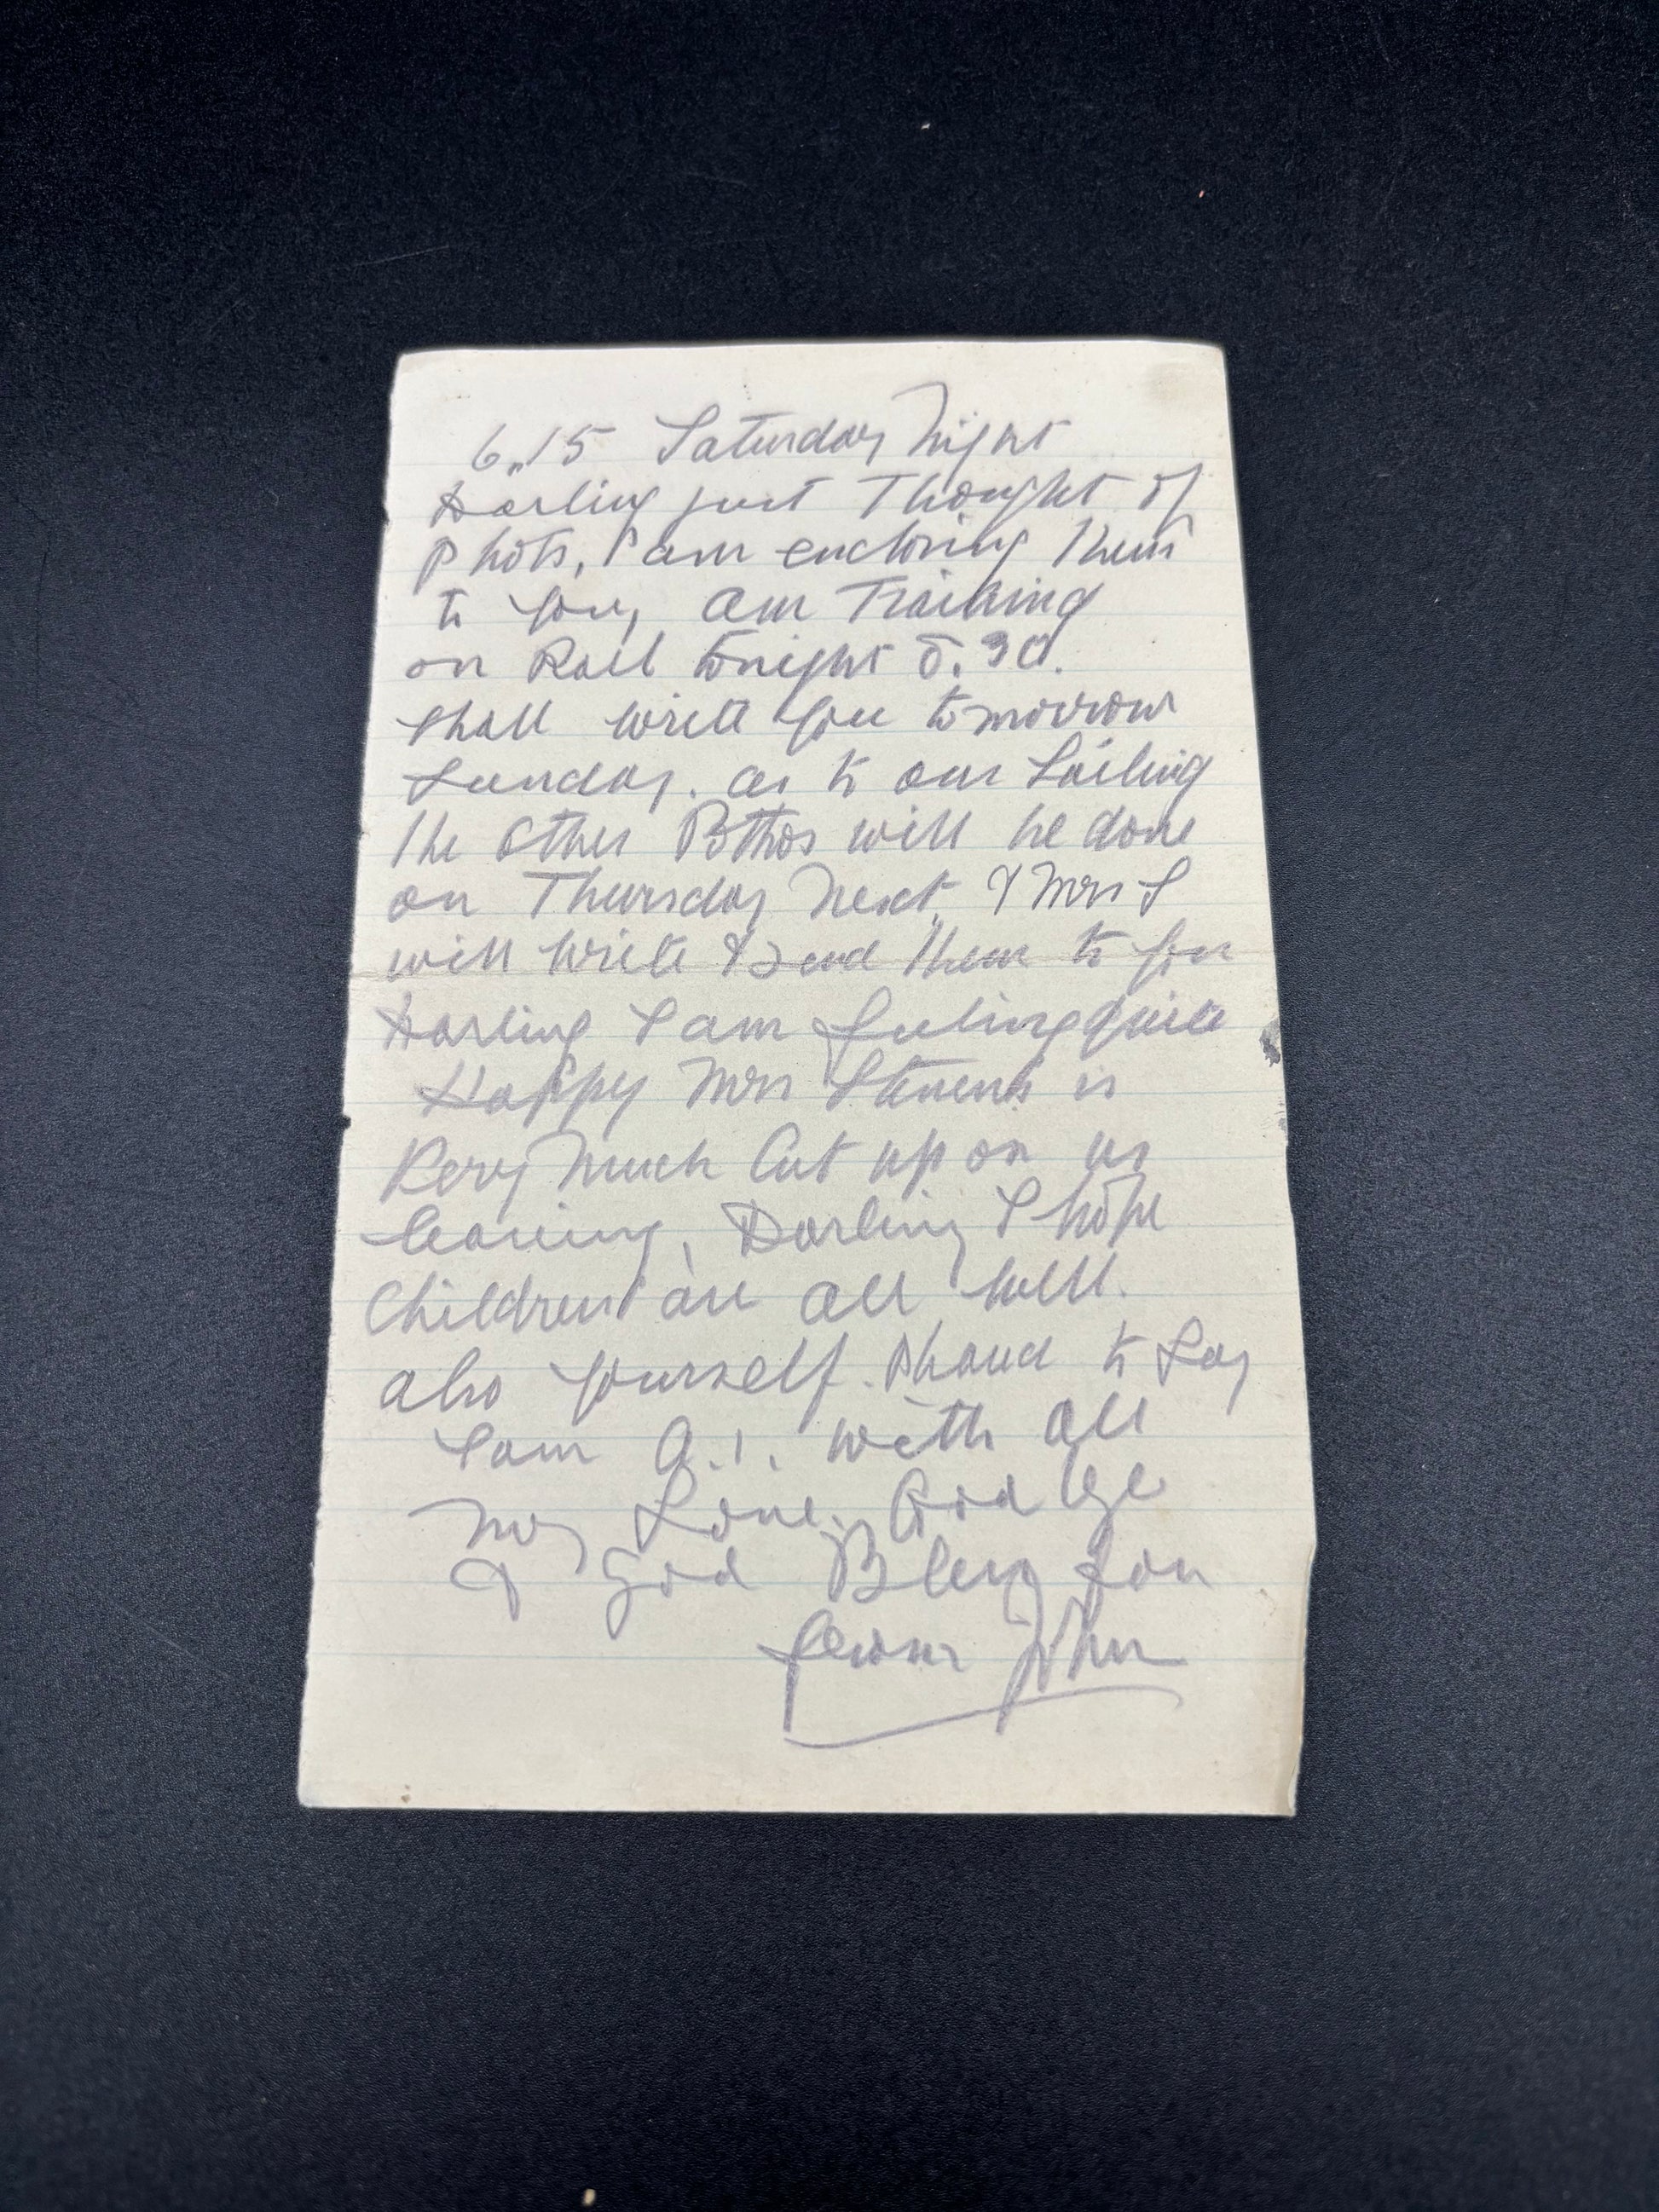 6.15 Saturday Night
Darling just Thought of
Photo, I am enclosing Them
to you, am Training
on Rail tonight 8.30.
Shall write you tomorrow
Sunday. as to our Sailing
The Other Pothos will be done
on Thursday Next. & Mrs S
will write & Send Them to you
Darling I am feeling quite
Happy Mrs Stevens is
Very Much Cut up on us
leaving, Darling I hope
Children are all well.
also yourself. to Say
I am A.1. with all
My Love. God
& God Bless You
John